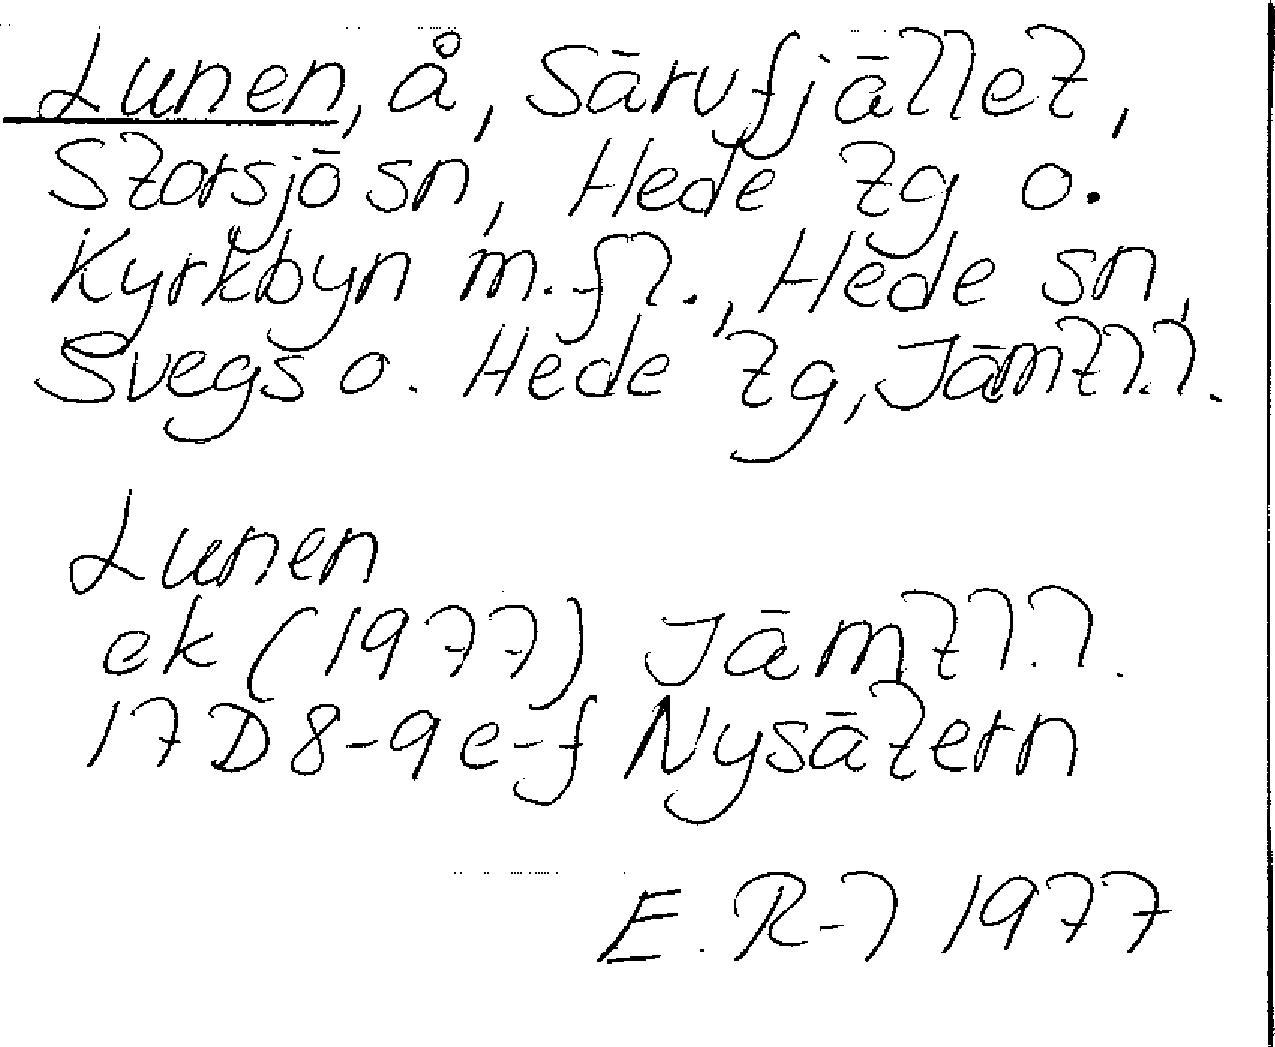 Lunen, å, Särvfjället,
Storsjö sn, Hede tg o.
Kyrkbyn m.fl., Hede sn,
Svegs o. Hede tg, Jämtl.l.
Lunen
ek (1977) Jämtl.l.
17D 8-9 e-f Nysätern
E. R-l 1977